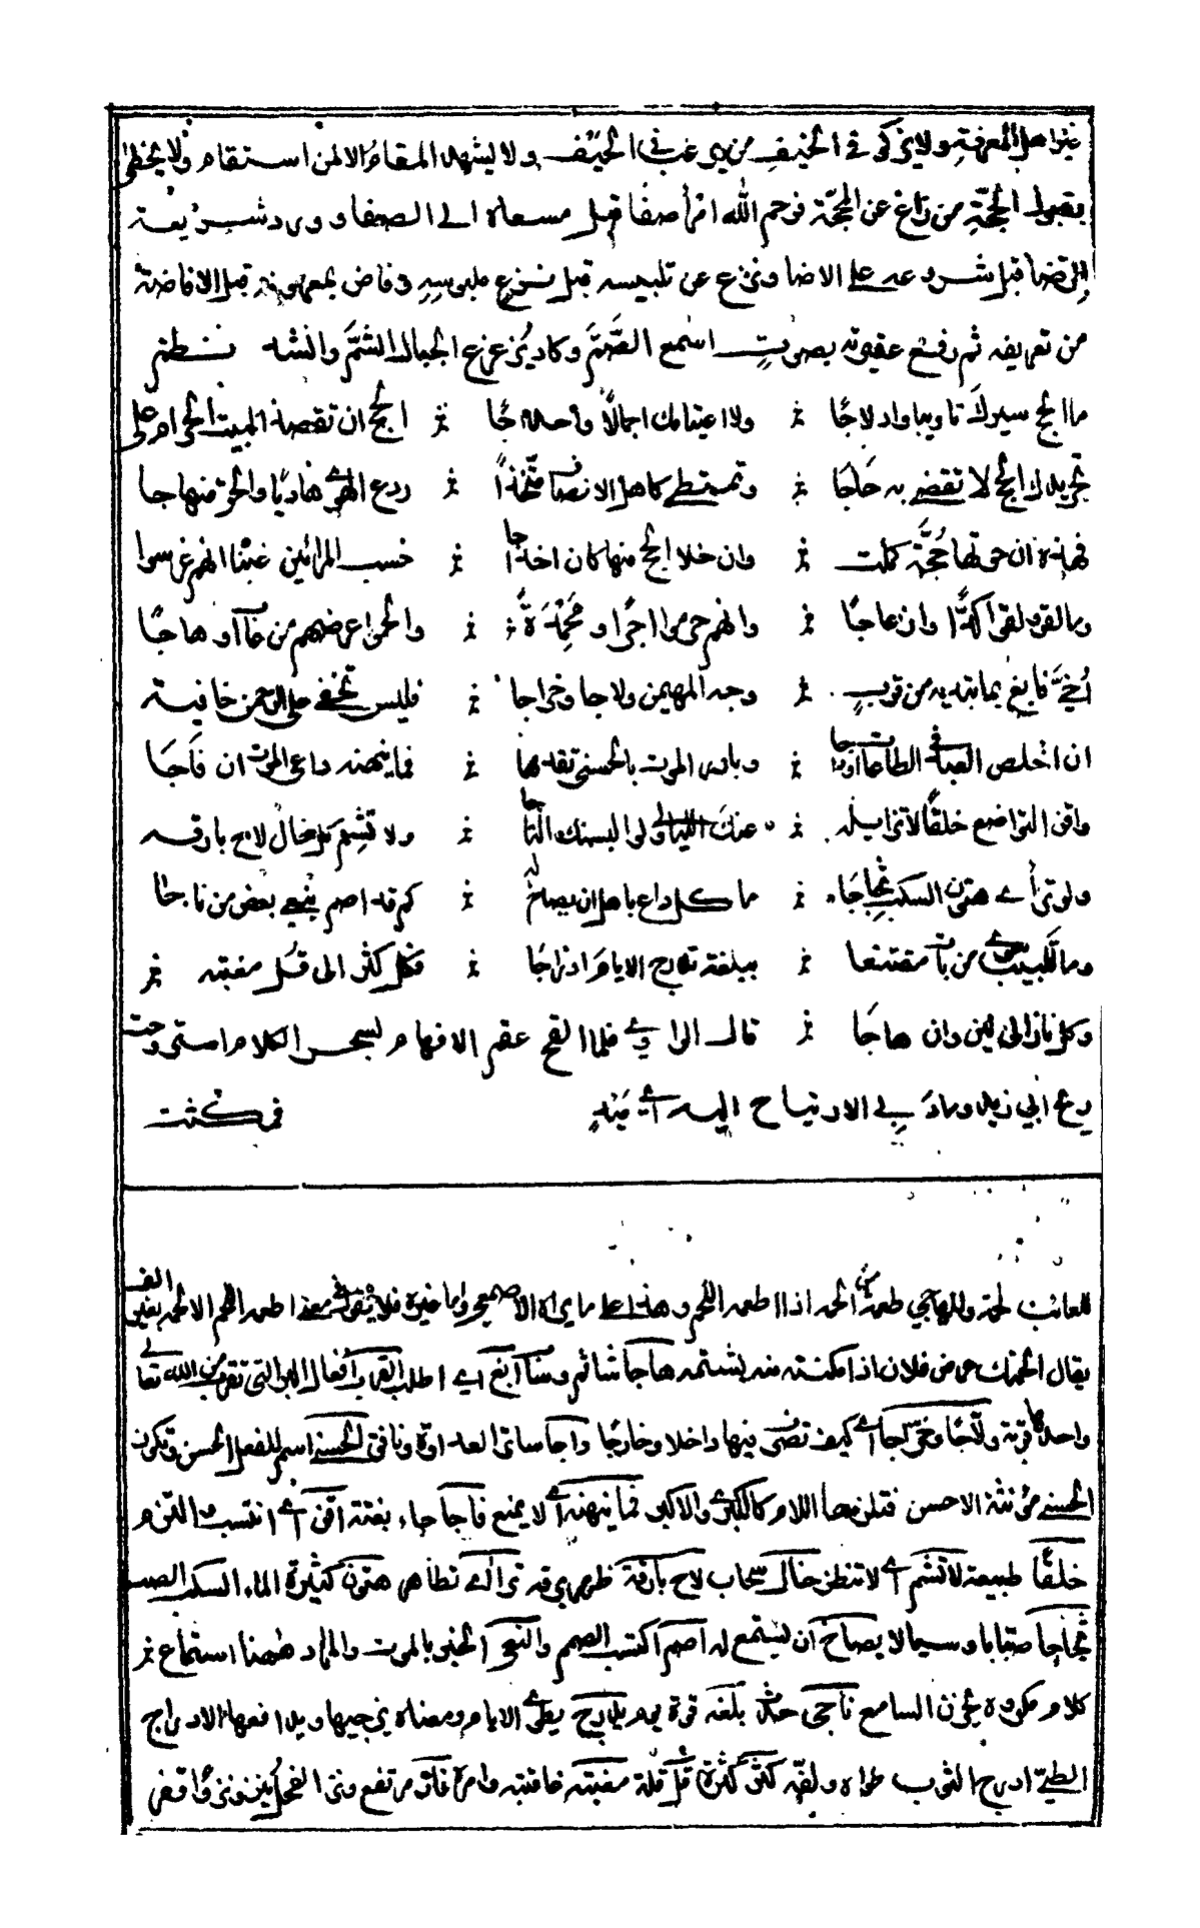 غير اهل المعرفة ولا يزكو في الخيف من يرغب في الحيف ولا يشهد المقام الا لمن استقام ولا يحظى
بقبول الحجة من زاغ عن المحجة فرحم الله امرأ صفا قبل مسعاه الى الصفا وورد شريعة
الرضا قبل شروعه على الاضا ونزع عن تلبيسه قبل نزع ملبوسه وفاض بمعروفه قبل الافاضة
من تعريفه ثم رفع عقيرته بصوت اسمع الصم وكاد يزعزع الجبال الشم وانشد نظم
ما الحج سيرك تاويبا وادلاجا ولا اعتيامك اجمالا واحداجا الحج ان تقصد البيت الحرام على
تجريدك الحج لا تقضى به حاجا وتمتطي كاهل الانصاف متخذا ردع الهوى هاديا والحق منهاجا
فهذه ان حوتها حجة كملت وان خلا الحج منها كان اخداجا حسب المرائين غبنا انهم غرسوا
وما القوا لقوا كدا وازعاجا وانهم حرموا اجرا ومحمدة والحموا عرضهم من عاب او هاجا
أخي فابغ بما تبديه من قرب وجه المهيمن ولاجا وخراجا فليس تخفى على الرحمن خافية
ان اخلص العبد في الطاعات او داجا وبادر الموت بالحسنى تقدمها فما ينهنه داعي الموت ان فاجا
واقن التواضع خلقا لا تزايله عنك الليالي ولو البسنك التاجا ولا تشم كل خال لاح بارقه
ولو ترأى هتون السكب ثجاجا ما كل داع باهل ان يصاخ له كم قد اصم بنعي بعض من ناجا
وما اللبيب سوى من بات مقتنعا ببلغة تدرج الايام ادراجا فكل كثر الى قل مغبته
وكل ناز الى لين وان هاجا قال الراوي فلما القح عقم الافهام بسحر الكلام استروحت
ريح ابي زيد ومادَ بي الارتياح اليه اي ميد
فمكثت
للعائب لحمة وللهاجي طعمة من الحمه اذا اطعمه اللحم وهذا على ما يراه الاصمعي واما غيره فلا يقول في معنى اطعمه اللحم الا لحمه بغير الف
يقال الحمتك عرض فلان اذا امكنته منه بشتمه هاجا شاتم وسبا ابغ اي اطلب القرب افعال البر التي تقرب من الله تعالى
واحدها قربة ولاجا وخراجا اي كيف تصرف فيها داخلا وخارجا داجا ساتر العداوة ونافق الحسنى اسم للفعل الحسن وتكون
الحسنى مؤنثة الاحسن فتلزمها اللام كالكبرى والاكبر فما ينهنه اي لا يمنع فاجا جاء بغتة اقن اي اكتسب والتزم
خلقا طبيعة لا تشم اي لا تنظر خال سحاب لاح بارقة ظهر برقه ترأى اي تظاهر هتون كثيرة الماء السكب الصب
ثجاجا صبابا وسيما لا يصاخ ان يستمع له اصم اكتسب الصمم والنعي الخبر بالموت والمراد ههنا استماع
كلام مكروه يحزن السامع ناجى حدث بلغة قوة يوم يدرج يطوي الايام ومعناه يزجيها ويدافعها الادراج
الطي ادرج الثوب طواه ولفه كثر كثرة قل قلة مغبته عاقبته وآخره ناز مرتفع ونزا الفحل ينزو نزوا وقفز